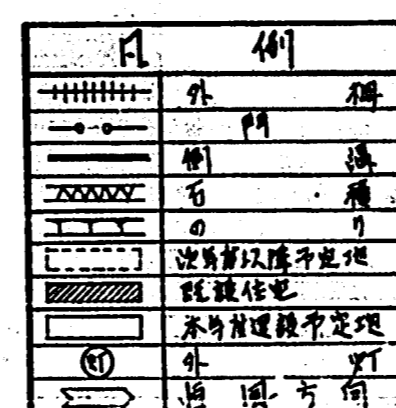 凡 例
外 柵
門
側 溝
石 積
の り
次年度以降予定地
既設住宅
本年度建設予定地
灯 外 灯
方向